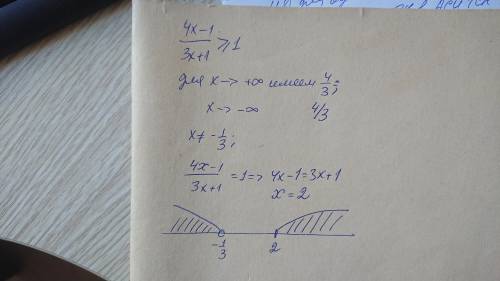 (4x-1)/(3x+1) ≥ 1
для x -> +∞ имеем 4/3;
x -> -∞ 4/3
x ≠ -1/3;
(4x-1)/(3x+1) = 1 => 4x-1=3x+1
x = 2
-1/3 2